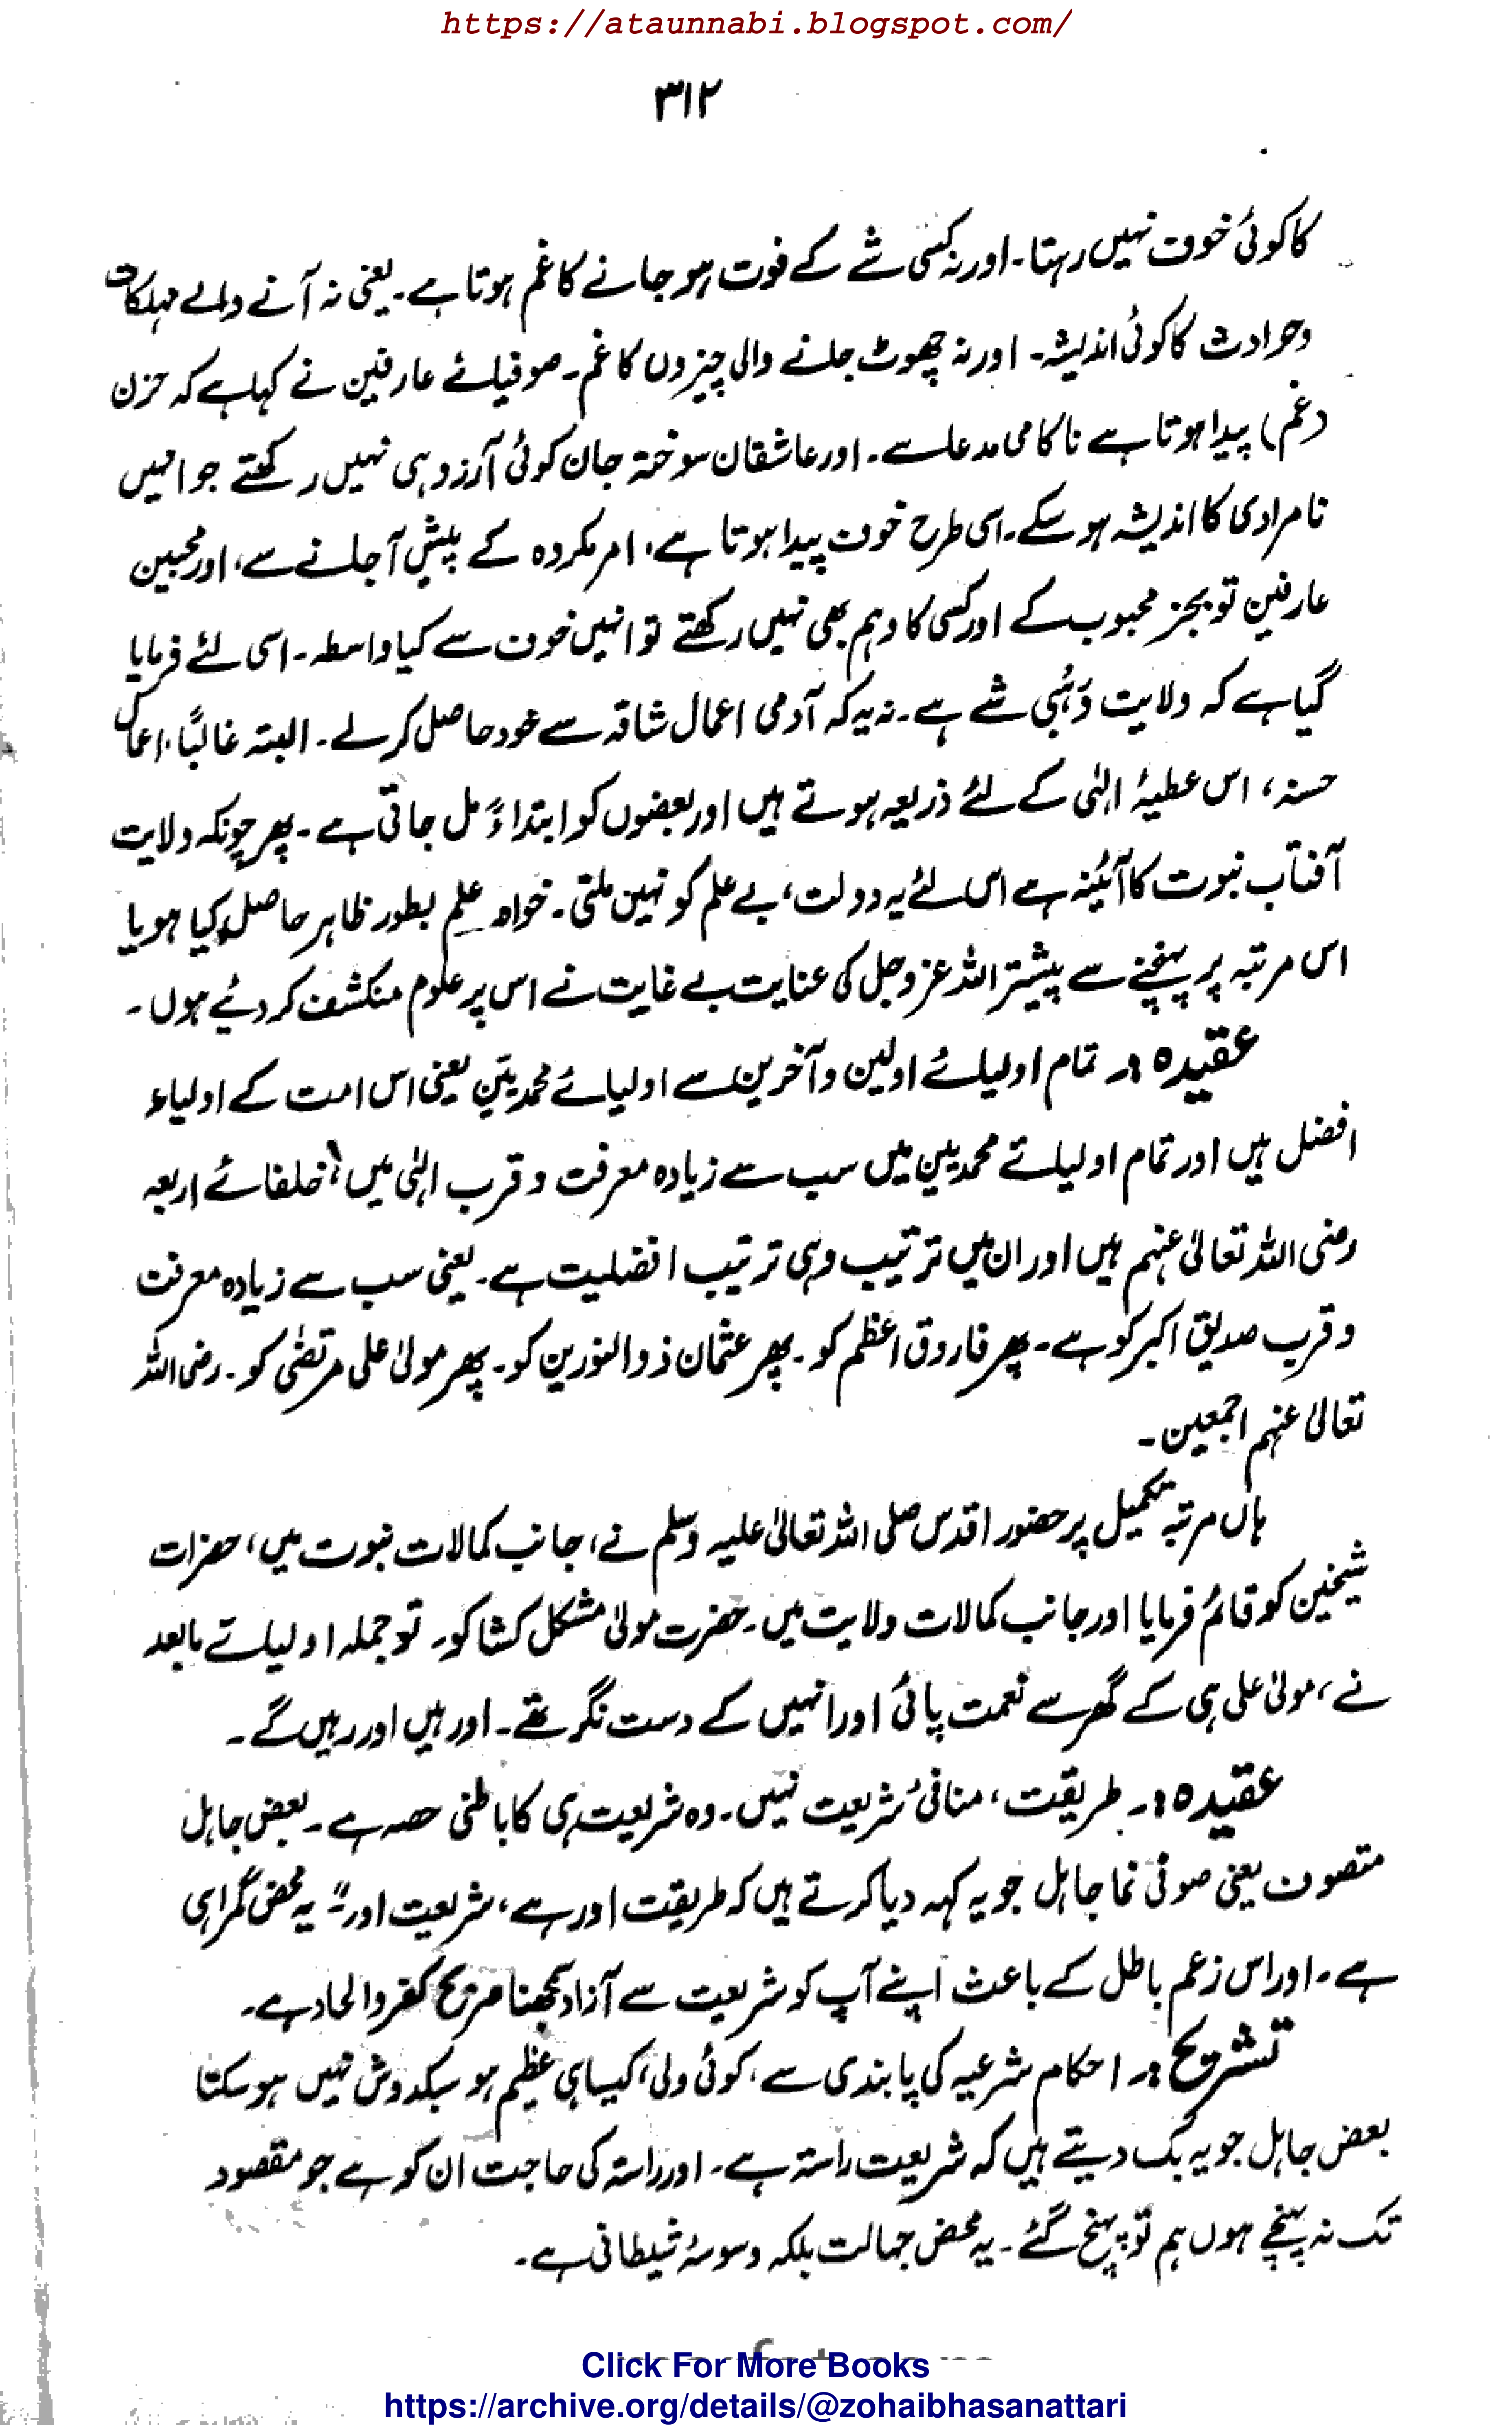 https://ataunnabi.blogspot.com/
۳۱۲
کا کوئی خوف نہیں رہتا۔ اور نہ کسی شے کے فوت ہو جانے کا غم ہوتا ہے۔ یعنی نہ آنے والے مہلکات
وحوادث کا کوئی اندیشہ۔ اور نہ چھوٹ جانے والی چیزوں کا غم۔ صوفیائے عارفین نے کہا ہے کہ حزن
(غم) پیدا ہوتا ہے ناکامی مدعا سے۔ اور عاشقان سوختہ جان کوئی آرزو ہی نہیں رکھتے جو انہیں
نامرادی کا اندیشہ ہو سکے۔ اسی طرح خوف پیدا ہوتا ہے، امر مکروہ کے پیش آجانے سے، اور محبین
عارفین تو بجز محبوب کے اور کسی کا وہم بھی نہیں رکھتے تو انہیں خوف سے کیا واسطہ۔ اسی لئے فرمایا
گیا ہے کہ ولایت وَہبی شے ہے۔ نہ یہ کہ آدمی اعمال شاقہ سے خود حاصل کر لے۔ البتہ غالباً، اعمال
حسنہ، اس عطیۂ الٰہی کے لئے ذریعہ ہوتے ہیں اور بعضوں کو ابتداءً مل جاتی ہے۔ پھر چونکہ ولایت
آفتاب نبوت کا آئینہ ہے اس لئے یہ دولت، بے علم کو نہیں ملتی۔ خواہ علم بطور ظاہر حاصل کیا ہو یا
اس مرتبہ پر پہنچنے سے پیشتر اللہ عزوجل کی عنایت بے غایت نے اس پر علوم منکشف کر دئیے ہوں۔
عقیدہ :۔ تمام اولیائے اولین و آخرین سے اولیائے محمدیین یعنی اس امت کے اولیاء
افضل ہیں اور تمام اولیائے محمدیین میں سب سے زیادہ معرفت و قرب الٰہی میں، خلفائے اربعہ
رضی اللہ تعالیٰ عنہم ہیں اور ان میں ترتیب وہی ترتیب افضلیت ہے۔ یعنی سب سے زیادہ معرفت
و قرب صدیق اکبر کو ہے۔ پھر فاروق اعظم کو۔ پھر عثمان ذوالنورین کو۔ پھر مولیٰ علی مرتضیٰ کو۔ رضی اللہ
تعالیٰ عنہم اجمعین۔
ہاں مرتبہ تکمیل پر حضور اقدس صلی اللہ تعالیٰ علیہ وسلم نے، جانب کمالات نبوت میں، حضرات
شیخین کو قائم فرمایا اور جانب کمالات ولایت میں۔ حضرت مولیٰ مشکل کشا کو۔ تو جملہ اولیائے مابعد
نے، مولیٰ علی ہی کے گھر سے نعمت پائی اور انہیں کے دست نگر تھے۔ اور ہیں اور رہیں گے۔
عقیدہ :۔ طریقت، منافیٔ شریعت نہیں۔ وہ شریعت ہی کا باطنی حصہ ہے۔ بعض جاہل
متصوف یعنی صوفی نما جاہل جو یہ کہہ دیا کرتے ہیں کہ طریقت اور ہے، شریعت اور" یہ محض گمراہی
ہے۔ اور اس زعم باطل کے باعث اپنے آپ کو شریعت سے آزاد سمجھنا صریح کفر و الحاد ہے۔
تشریح :۔ احکام شرعیہ کی پابندی سے، کوئی ولی، کیسا ہی عظیم ہو سبکدوش نہیں ہو سکتا
بعض جاہل جو یہ بک دیتے ہیں کہ شریعت راستہ ہے۔ اور راستہ کی حاجت ان کو ہے جو مقصود
تک نہ پہنچے ہوں ہم تو پہنچ گئے۔ یہ محض جہالت بلکہ وسوسۂ شیطانی ہے۔
Click For More Books
https://archive.org/details/@zohaibhasanattari